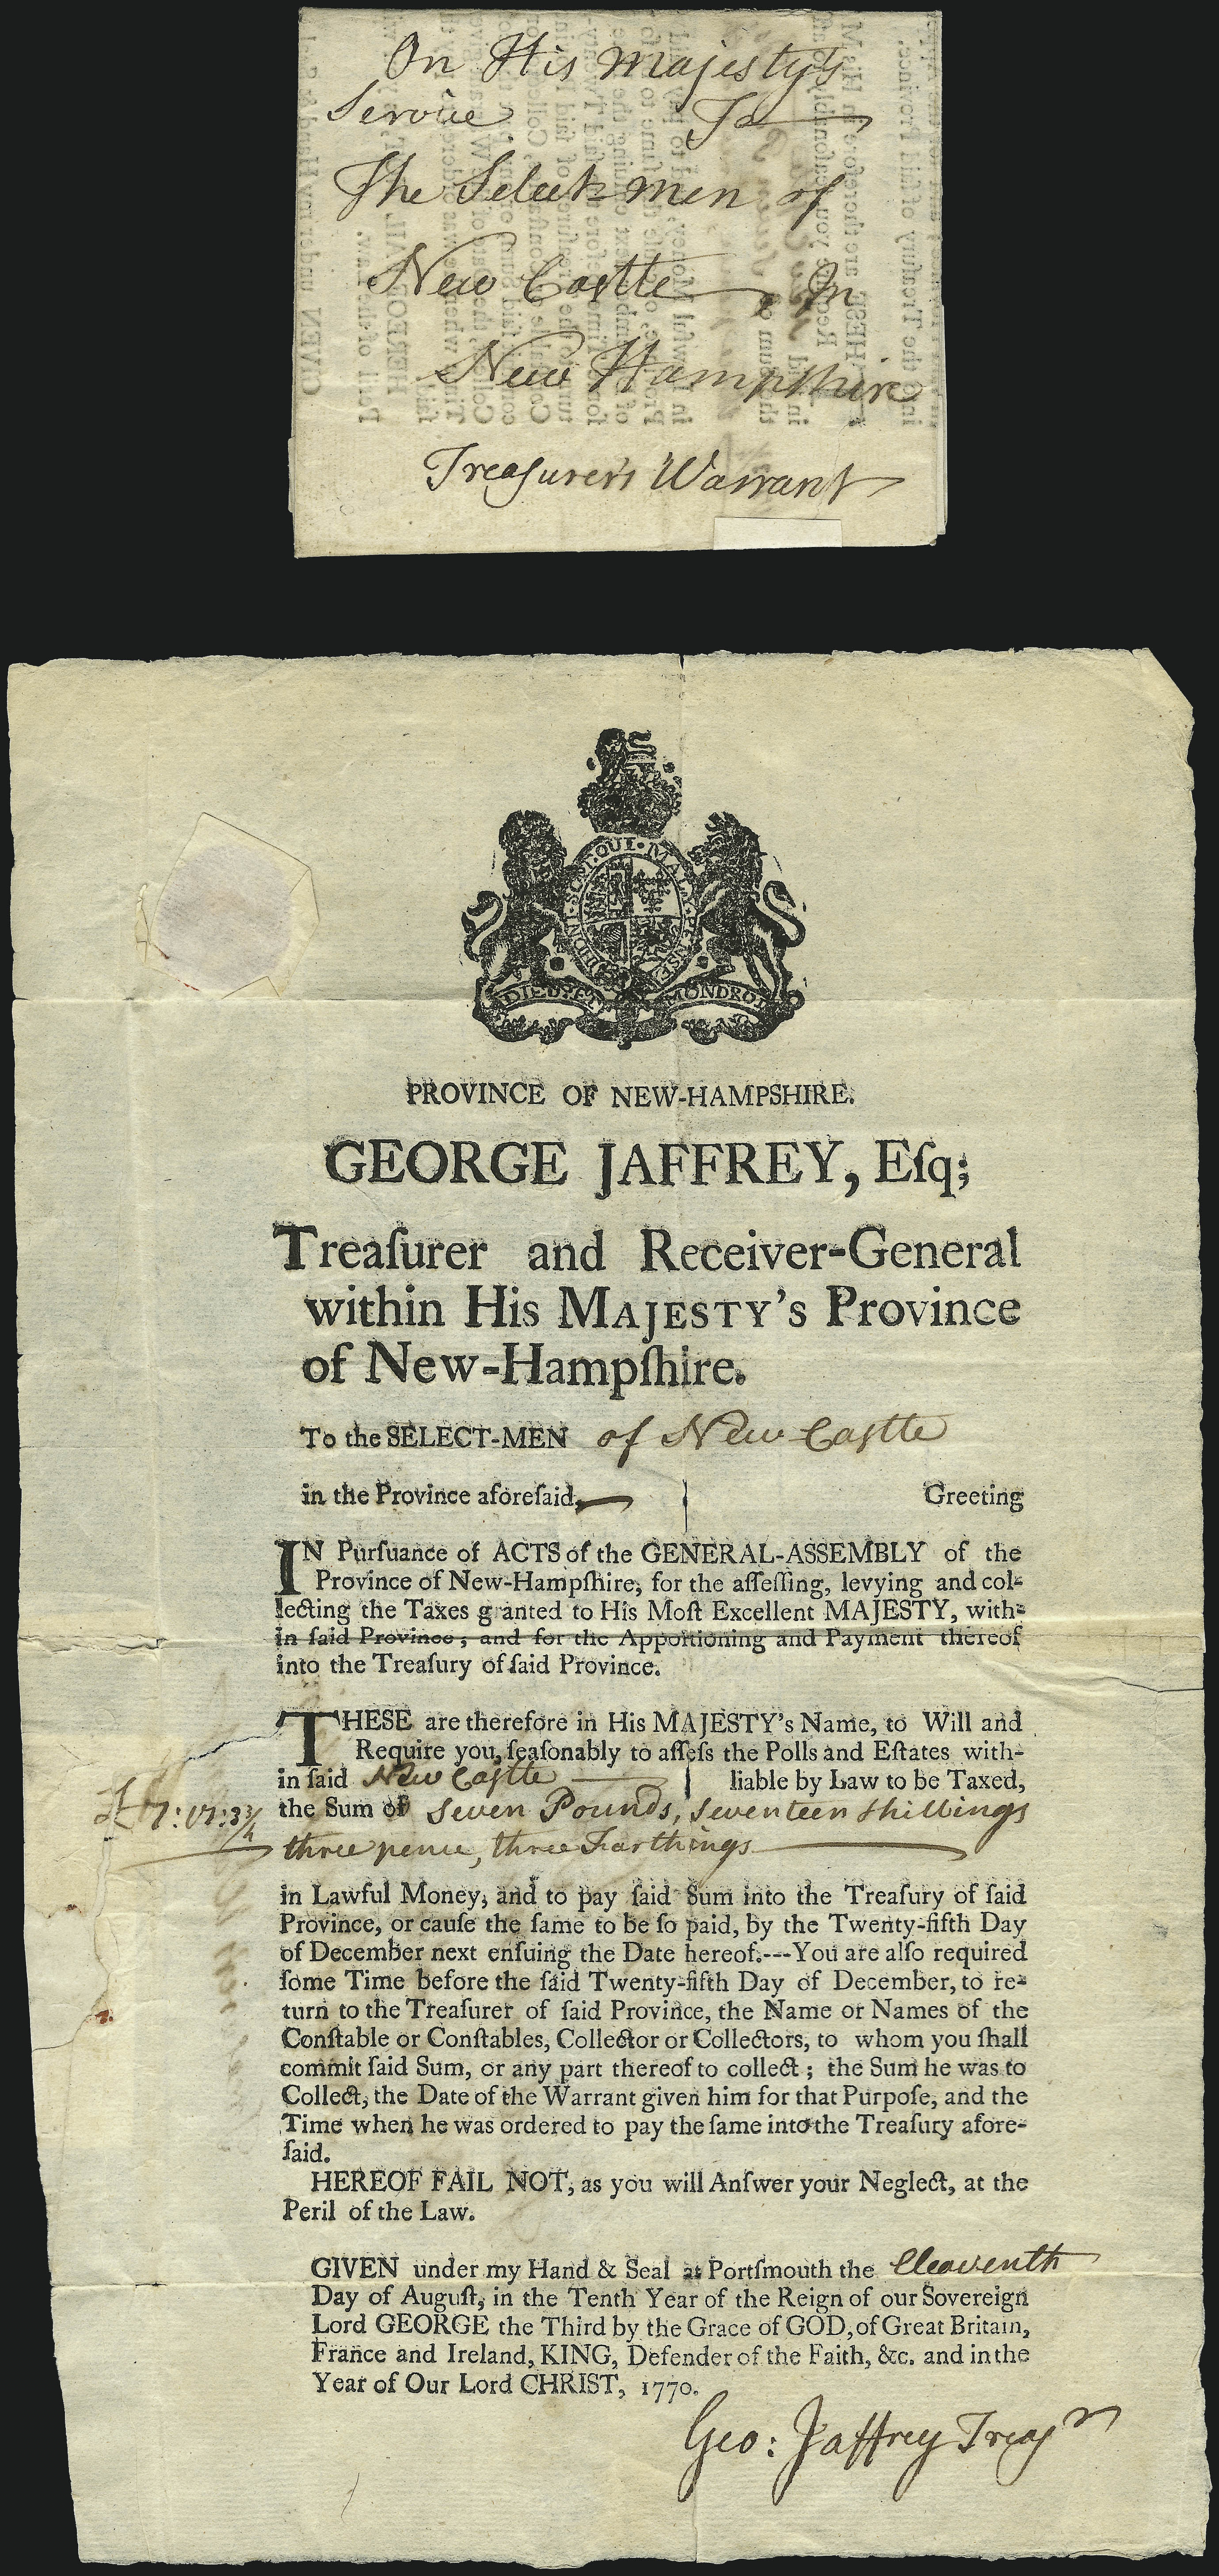 On His Majesty's
Service To
The Select-men of
New Castle, In
New Hampshire
Treaſurer's Warrant
HONI·SOIT·QUI·MAL·Y·PENSE
DIEU·ET MONDROIT
PROVINCE OF NEW-HAMPSHIRE.
GEORGE JAFFREY, Eſq;
Treaſurer and Receiver-General
within His MAJESTY's Province
of New-Hampſhire.
To the SELECT-MEN of New Castle
in the Province aforeſaid, Greeting
IN Purſuance of ACTS of the GENERAL-ASSEMBLY of the
Province of New-Hampſhire, for the aſſeſſing, levying and col-
lecting the Taxes granted to His Moſt Excellent MAJESTY, with-
in ſaid Province; and for the Apportioning and Payment thereof
into the Treaſury of ſaid Province.
THESE are therefore in His MAJESTY's Name, to Will and
Require you, ſeaſonably to aſſeſs the Polls and Eſtates with-
in ſaid New Castle liable by Law to be Taxed,
£7:17:3¾ the Sum of Seven Pounds, Seventeen Shillings
three pence, three Farthings
in Lawful Money, and to pay ſaid Sum into the Treaſury of ſaid
Province, or cauſe the ſame to be ſo paid, by the Twenty-fifth Day
of December next enſuing the Date hereof.---You are alſo required
ſome Time before the ſaid Twenty-fifth Day of December, to re-
turn to the Treaſurer of ſaid Province, the Name or Names of the
Conſtable or Conſtables, Collector or Collectors, to whom you ſhall
commit ſaid Sum, or any part thereof to collect; the Sum he was to
Collect, the Date of the Warrant given him for that Purpoſe, and the
Time when he was ordered to pay the ſame into the Treaſury afore-
ſaid.
HEREOF FAIL NOT, as you will Anſwer your Neglect, at the
Peril of the Law.
GIVEN under my Hand & Seal at Portſmouth the Eleaventh
Day of Auguſt, in the Tenth Year of the Reign of our Sovereign
Lord GEORGE the Third by the Grace of GOD, of Great Britain,
France and Ireland, KING, Defender of the Faith, &c. and in the
Year of Our Lord CHRIST, 1770.
Geo: Jaffrey Treasr